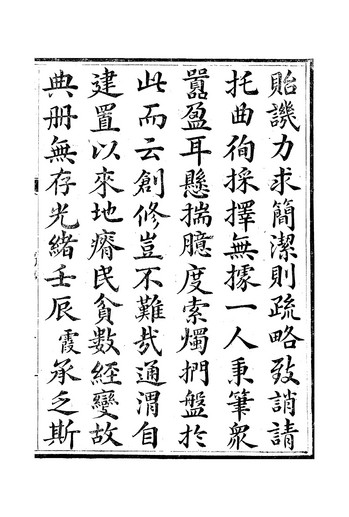 貽譏力求簡潔則疏略致誚請
托曲徇採擇無據一人秉筆衆
囂盈耳懸揣臆度索燭捫盤於
此而云創修豈不難㢤通渭自
建置以來地瘠民貧數經變故
典册無存光緒壬辰霞承乏斯